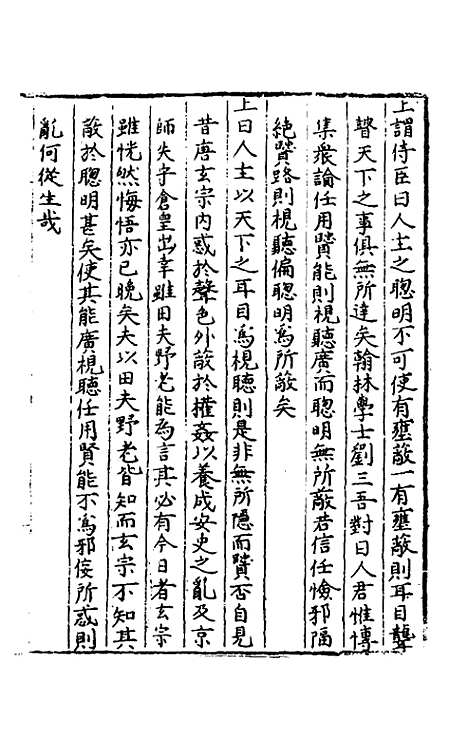 上謂侍臣曰人主之聰明不可使有壅蔽一有壅蔽則耳目聾
瞽天下之事俱無所達矣翰林學士劉三吾對曰人君惟博
集衆論任用賢能則視聽廣而聰明無所蔽若信任憸邪隔
絶賢路則視聽偏聰明為所蔽矣
上曰人主以天下之耳目為視聽則是非無所隱而賢否自見
昔唐玄宗内惑於聲色外蔽於權姦以養成安史之亂及京
師失守倉皇出幸雖田夫野老能為言其必有今日者玄宗
雖恍然悔悟亦已晚矣夫以田夫野老皆知而玄宗不知其
蔽於聰明甚矣使其能廣視聽任用賢能不為邪佞所惑則
亂何從生哉